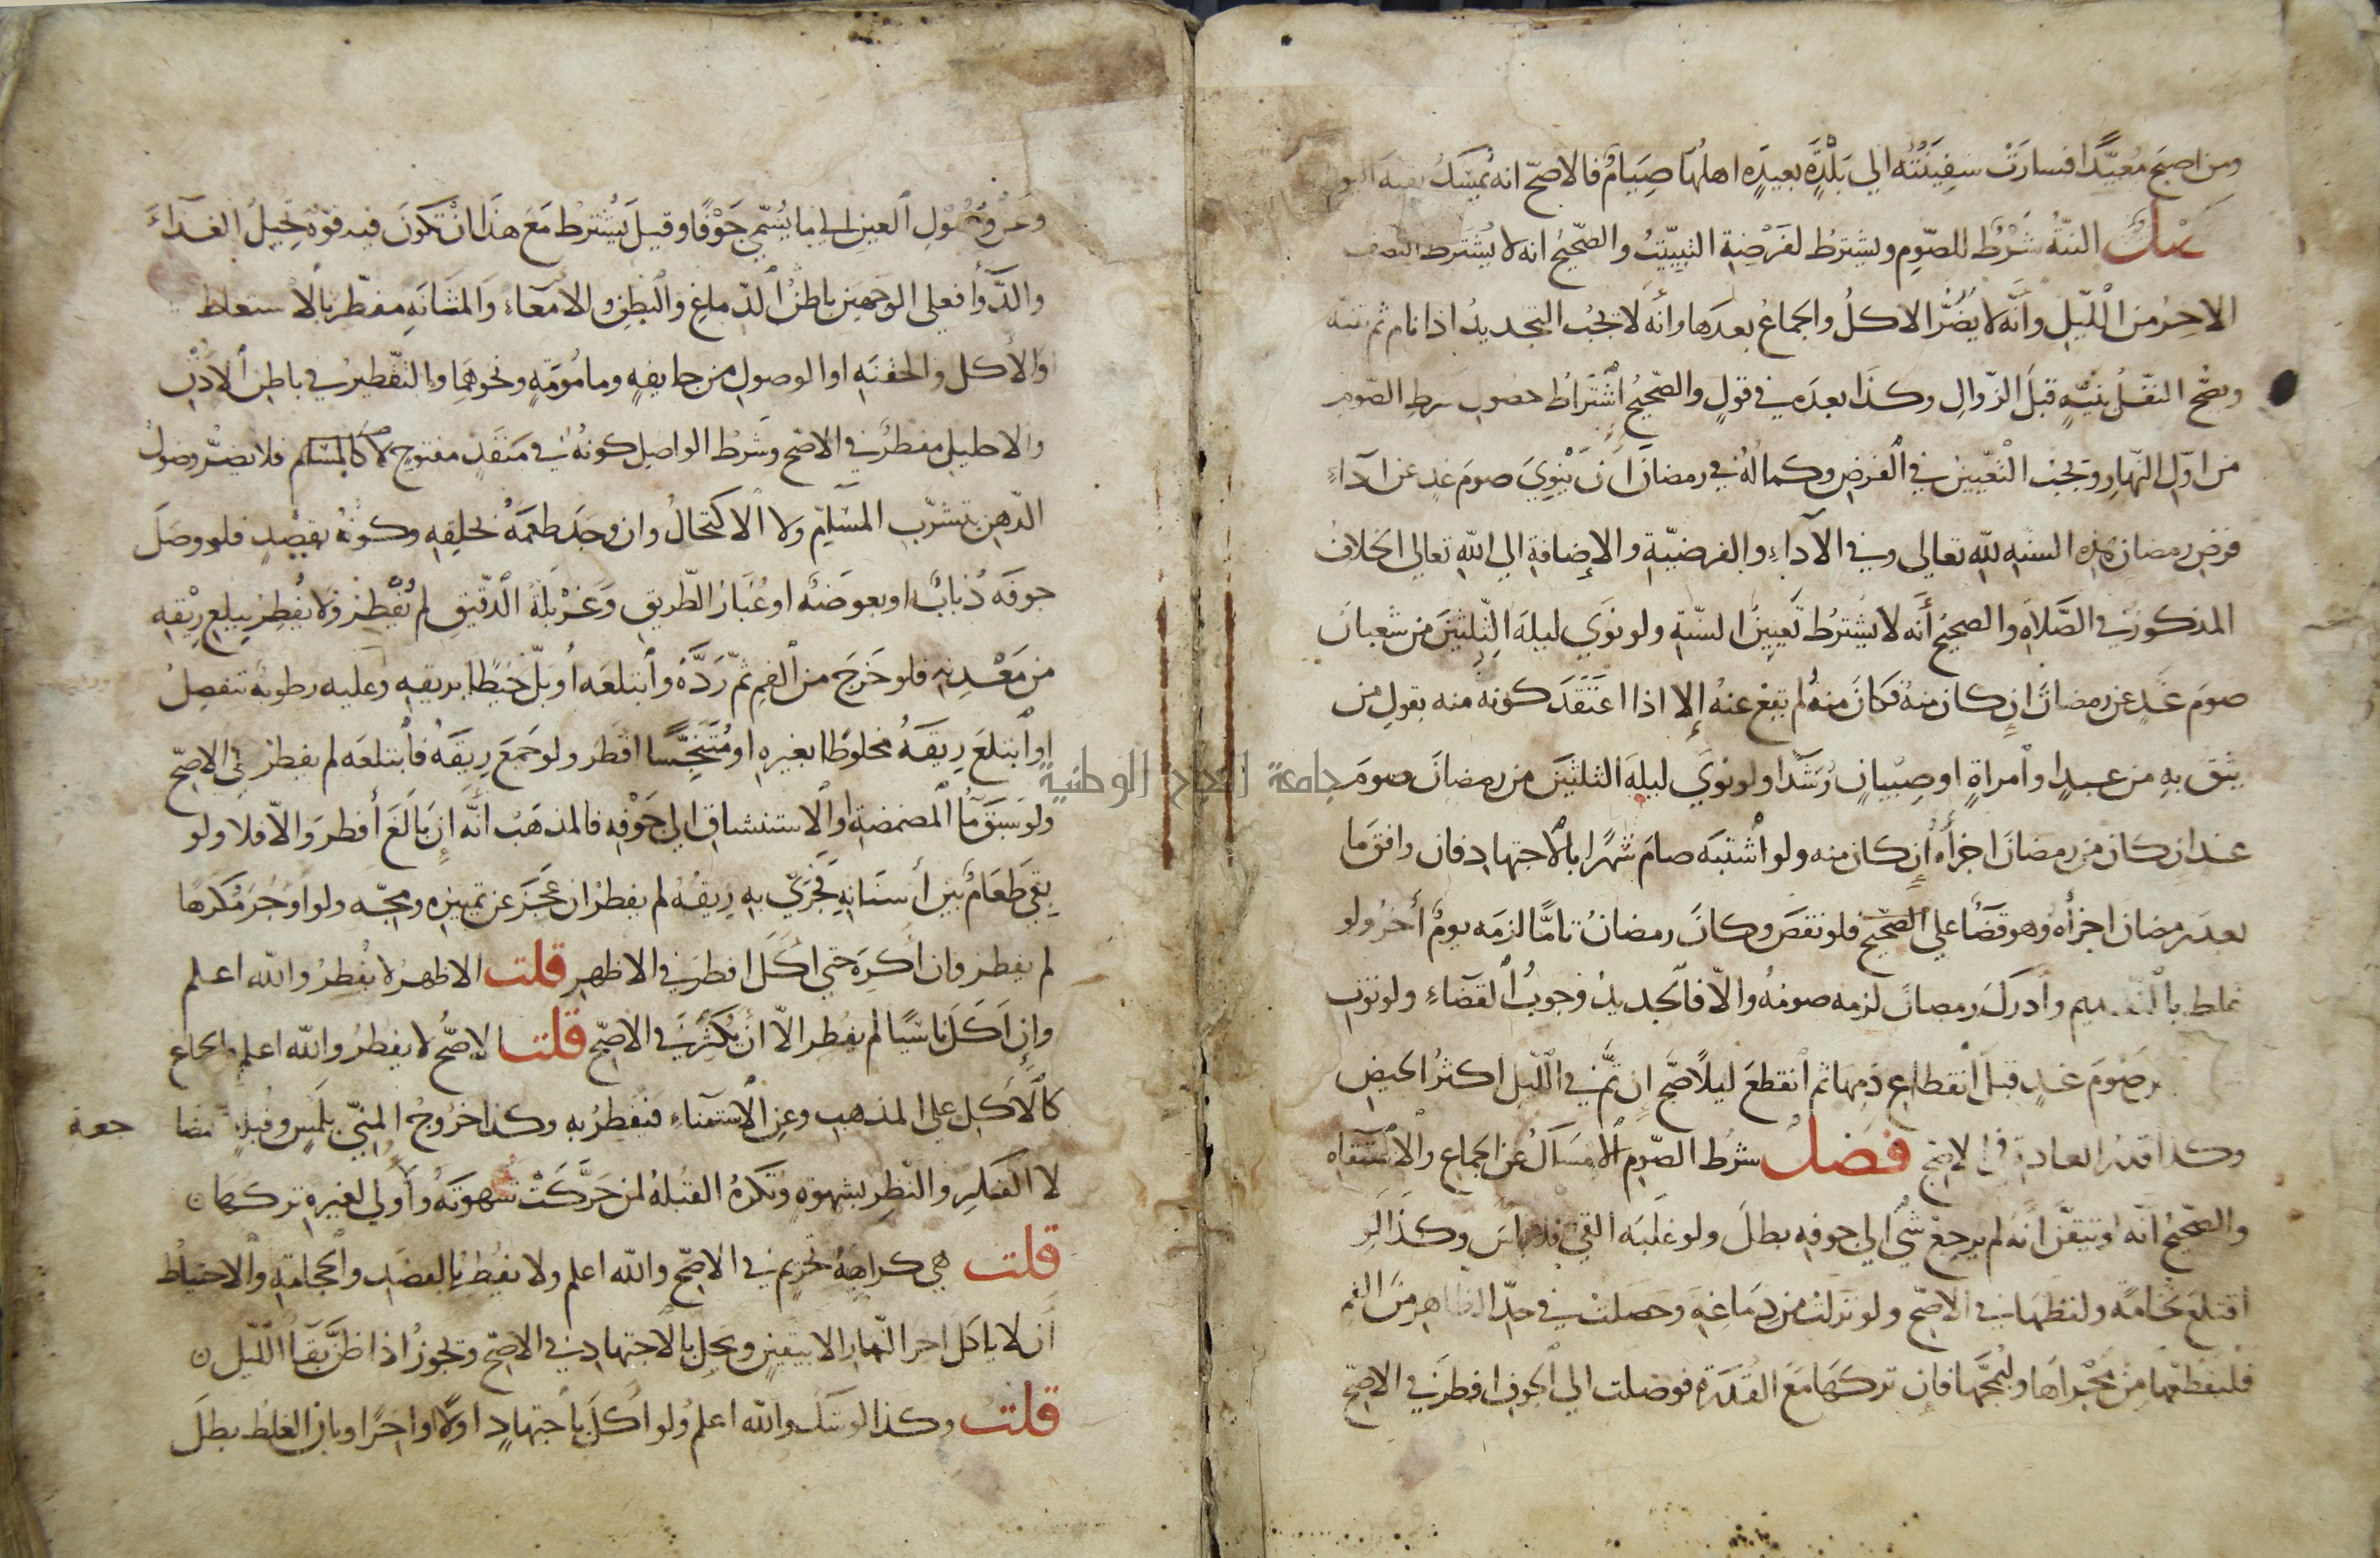 ومن اصبح مُعيِّدًا فسارَتْ سفِينَتُهُ الي بَلْدَةٍ بعيدَةٍ اهلُهَا صِيَامٌ فالاصحّ انه يُمسِكُ بقية اليوم
فصل النيّةُ شَرْطٌ للصّومِ ويشترطُ لفَرْضِهِ التبييتُ والصّحيحُ انه لا يُشتَرط النصف
الاخرُ من اللّيلِ وأنّه لا يَضُرُّ الاكلُ والجماعُ بعدَها وأنّه لا يجبُ التجديدُ اذا نام ثم تنبّه
ويصحّ النفلُ بنيّةٍ قبلَ الزّوالِ وكذا بعدَه في قولٍ والصّحيحُ اشتراطُ حصول شرط الصّوم
من اوّل النّهارِ ويجبُ التّعيينُ في الفرضِ وكمالُهُ في رمضانَ أنْ يَنْوِيَ صومَ غدٍ عن اداءِ
فرضِ رمضان هذه السنه لله تعالى وفي الأداءِ والفرضيّةِ والإضافةِ الي اللهِ تعالي الخلافُ
المذكورُ في الصَّلاةِ والصحيحُ أنّه لا يشترطُ تعيينُ السّنةِ ولو نوَي ليلةَ الثلثينَ من شعبانَ
صومَ غدٍ عن رمضانَ ان كان منهُ فكانَ منهُ لم يقع عنهُ إلا اذا اعتقدَ كونه منه بقولِ من
يثق بهِ من عبدٍ او أمراةٍ او صِبْيانٍ رُشَدَا ولو نوَي ليلةَ الثلثينَ من رمضانَ صومَ
غدٍ ان كان من رمضانَ اجزأه إن كان منه ولو اشتبَه صامَ شهرًا بالاجتهادِ فان وافقَ ما
بعدَ رمضان اجزأهُ وهو قضَاً علي الصّحيح فلو نقصَ وكانَ رمضانُ تامًّا لزمَه يومٌ أخرُ ولو
غلط بالتقديم وأدركَ رمضانَ لزمه صومُهُ والّا فالجديدُ وجوبُ القضاءِ ولو نوت
صَوْمَ غدٍ قبلَ انقطاعِ دَمِها ثم انقطعَ ليلًا صحَّ إن تمَّ في اللّيلِ اكثرُ الحيضِ
وكذا قدرُ العادةِ في الاصحّ فصل شرطُ الصّومِ الامسَاكُ عن الجماع والاستقاه
والصّحيحُ انّه لو تيقّنَ انّه لم يرجع شئٌ الي جوفه بطلَ ولو غلبَه القئ فلا باسَ وكذا لَو
اقتلعَ نخامةً ولفظَها في الاصحّ ولو نزلت من دِمَاغِهِ وحصلتْ في حدّ الظاهر منَ الفم
فليقطعْها من مجْرَاهَا وليمجَّها فان تركَهَا معَ القُدرَةِ فوصلت الي الجوفِ افطرَ في الاصحّ
وعَن وُصُولِ العينِ الي ما يُسَمّي جَوْفًا وقيلَ يُشترطُ مَعَ هَذا انْ تكونَ فيه قوّةٌ تُحِيلُ الغذاءَ
والدَّوَأ فعلي الوجهينِ باطنُ الدّماغِ والبطنِ والأمعاءِ وَالمثَانَةِ مفطّر بالاسعاط
والأكل والحقنَةِ او الوصولِ من جايفةٍ ومامُومةٍ ونحوِهما والتّقطيرُ في باطِنِ الأُذُنِ
والاحليلِ مفطرٌ في الاصحِّ وشرطُ الواصِلِ كونهُ في مَنفَذٍ مفتوحٍ لا كالمسَامِّ فلا يضرُّ وصولُ
الدّهنِ بتشرّبِ المسَامِّ ولا الاكتحالُ وان وجدَ طعمَهُ بحلقِهِ وكونُهُ بقصْدٍ فلو وصَلَ
جوفَهَ ذُبابٌ او بعوضَةٌ او غُبَارُ الطّريقِ وَغَرْبَلَةُ الدّقيقِ لم يُفْطِرْ وَلا يُفطِرُ ببلعِ رِيْقِهِ
من مَعْدِنِهِ فلو خَرَجَ من الفمِ ثمّ رَدَّهُ وابتلعَه أو بَلَّ خَيطًا بريقهِ وعليه رطوبةٌ تنفصِلُ
او ابتلعَ رِيقَهُ مخلوطًا بغيرِهِ او مُتَنَجِّسًا افطَر ولو جَمَعَ رِيقَهُ فابتلعَه لم يفطرْ في الاصحّ
ولو سَبَقَ مَاُ المضمضةِ او الاستنشاق الي جَوْفِهِ فالمذهبُ أنّه إن بَالَغَ أفطرَ والّا فلا ولو
بقيَ طعَامٌ بين أسنَانِهِ فجَرَي به رِيقُهُ لم يفطرْ ان عجَزَ عن تميِيزِه ومجِّه ولو اوجُرَ مُكرَهًا
لم يفطر وان أُكرِهَ حتي اكَلَ افطر في الاظهرِ قلت الاظهرُ لا يُفطِرُ والله اعلم
وإن اكَلَ ناسَيًا لم يفطر الّا انْ يُكثِرَ في الاصحّ قلت الاصحُّ لا يفطرُ والله اعلم والجماع
كالأكلِ علي المذهب وعنِ الاستمناءِ فيُفطِرُ به وكذا خرُوجُ المنيّ بلمسٍ وقُبلةٍ ومضا جعة
لا الفكرِ والنّظرِ بشهوةٍ وتُكرَهُ القُبلةُ لمن حَرَّكَتْ شهوتَهُ والأولي لغيرِه تركهَا ۝
قلت هي كراهةُ تحريم في الاصحّ والله اعلم ولا يفطرُ بالفصدِ والحجامَةِ والاحتياطُ
أن لا ياكل اخر النّهار الا بيقينٍ ويحلّ بالاجتهادِ في الاصحّ ويجوزُ اذا ظنَّ بقَآَ اللّيل ۝
قلت وكذا لو شكَّ والله اعلم ولو أكلَ بأجتهادٍ اوّلا او اخِرًا وبانَ الغلطُ بطلَ
جامعة النجاح الوطنية